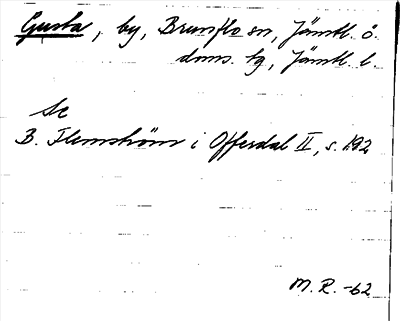 Gusta, by, Brunflo sn, Jämtl. ö.
doms. tg, Jämtl. l.
Se
B. Flemström i Offerdal II, s. 192
M. R. -62